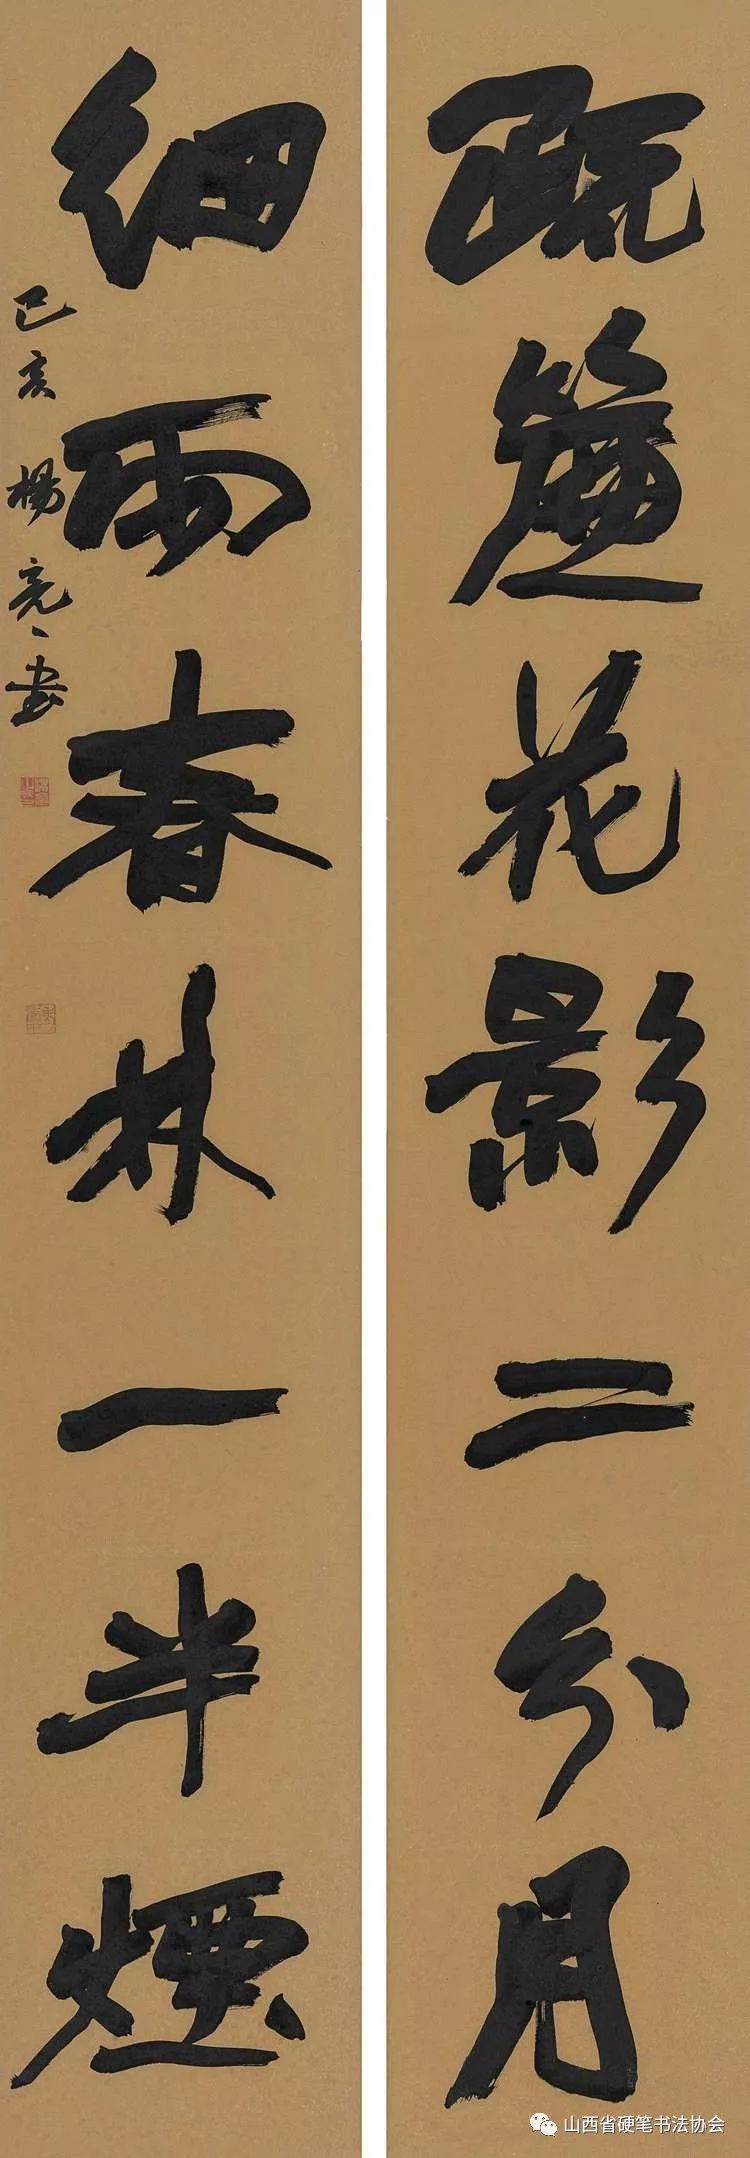 疏簾花影二分月
細雨春林一半煙
己亥楊亮々書
山西省硬笔书法协会